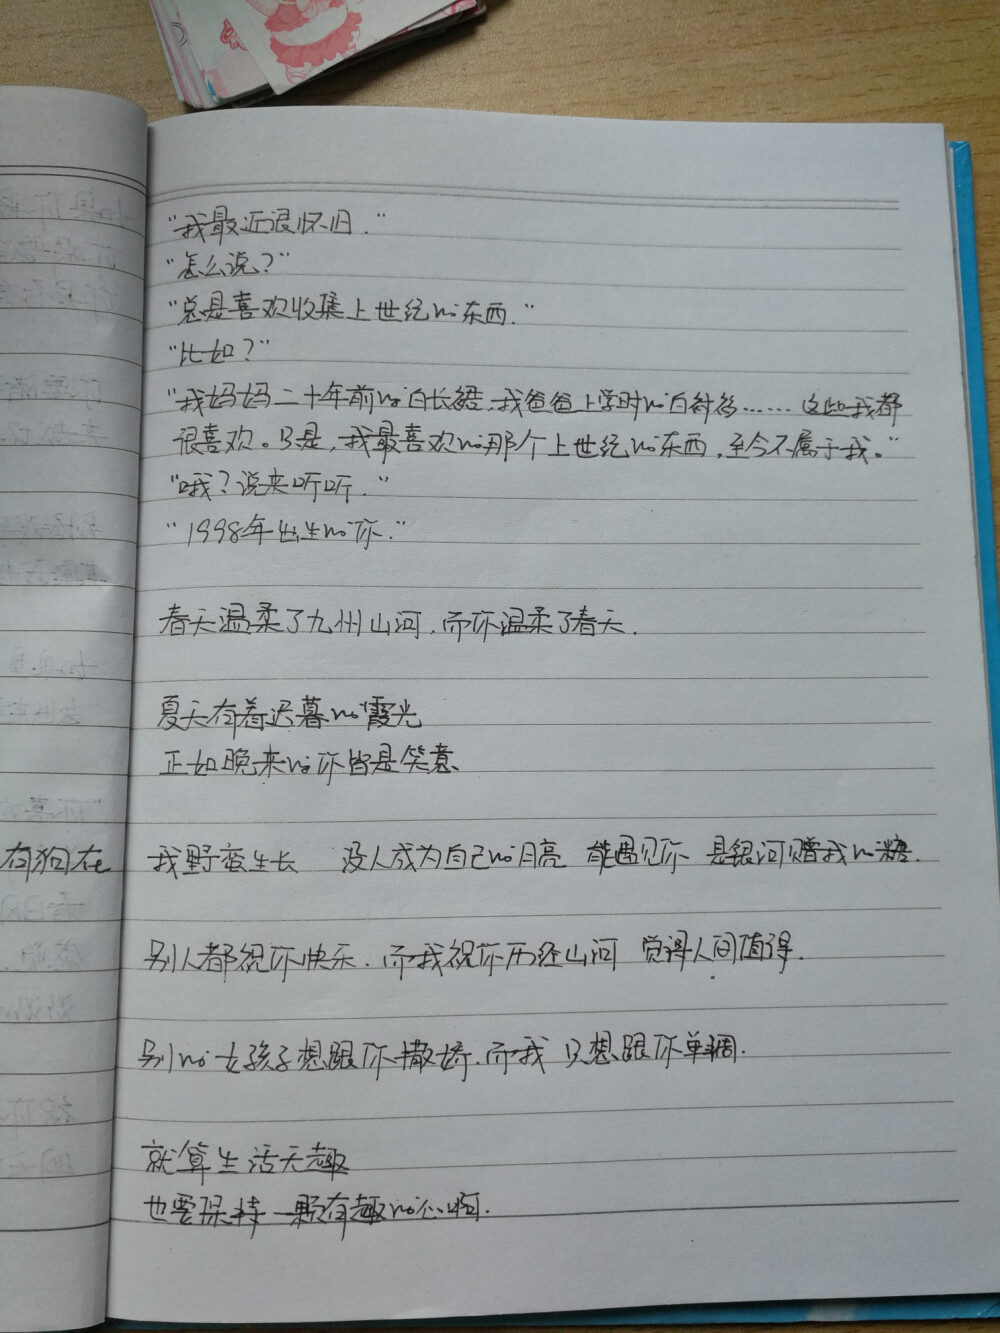 "我最近很怀旧."
"怎么说？"
"总是喜欢收集上世纪的东西."
"比如？"
"我妈妈二十年前的白长裙,我爸爸上学时的白衬衫……这些我都
很喜欢。只是,我最喜欢的那个上世纪的东西,至今不属于我。"
"哦？说来听听."
"1998年出生的你."
春天温柔了九州山河,而你温柔了春天.
夏天有着迟暮的霞光
正如晚来的你皆是笑意
有狗在
我野蛮生长 没人成为自己的月亮 能遇见你 是银河赠我的糖.
别人都祝你快乐.而我祝你历经山河 觉得人间值得.
别的女孩子想跟你撒娇.而我 只想跟你单调.
就算生活无趣
也要保持一颗有趣的心啊.